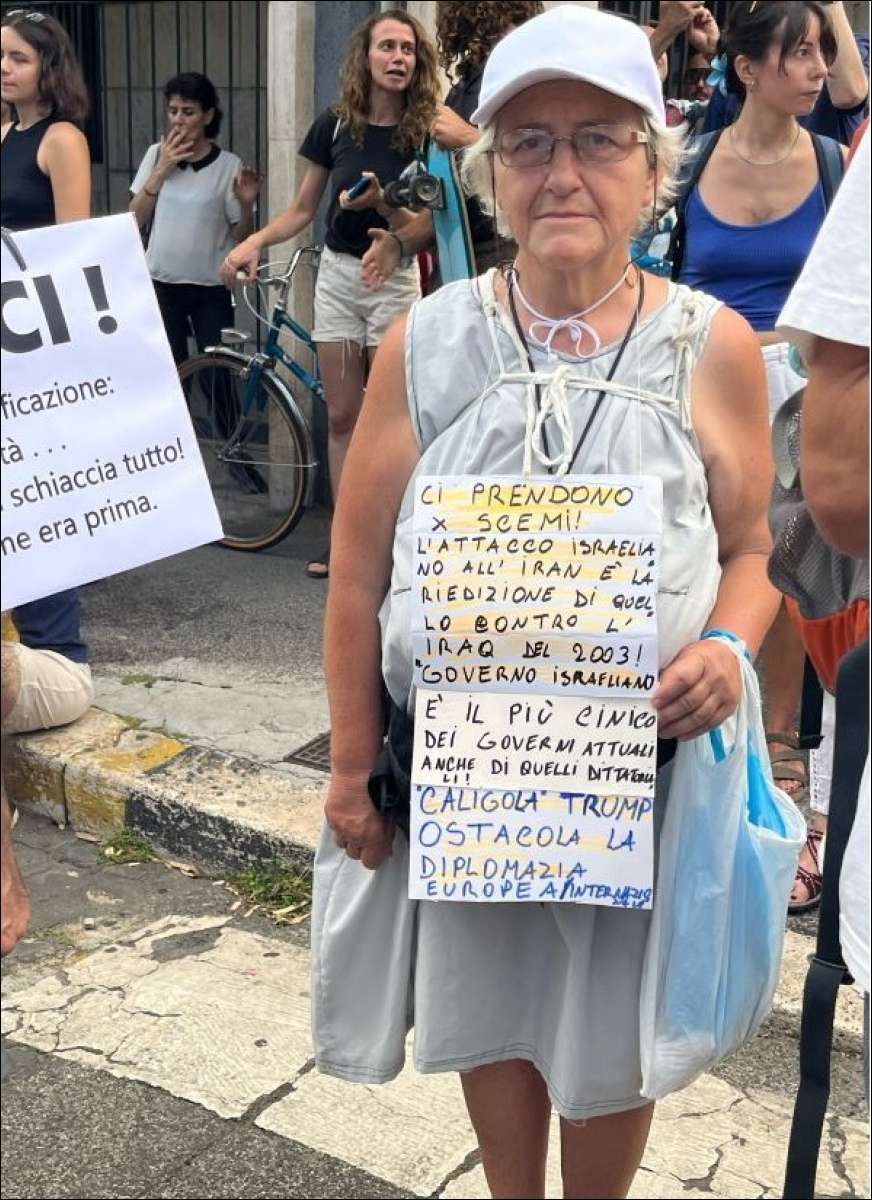 CI!
ficazione:
tà ...
schiaccia tutto!
me era prima.
CI PRENDONO
X SCEMI!
L'ATTACCO ISRAELIA
NO ALL'IRAN È LA
RIEDIZIONE DI QUEL
LO CONTRO L'
IRAQ DEL 2003!
"GOVERNO ISRAELIANO
È IL PIÙ CINICO
DEI GOVERNI ATTUALI
ANCHE DI QUELLI DITTATORIA
LI!!
"CALIGOLA" TRUMP
OSTACOLA LA
DIPLOMAZIA
EUROPEA/INTERNAZIO